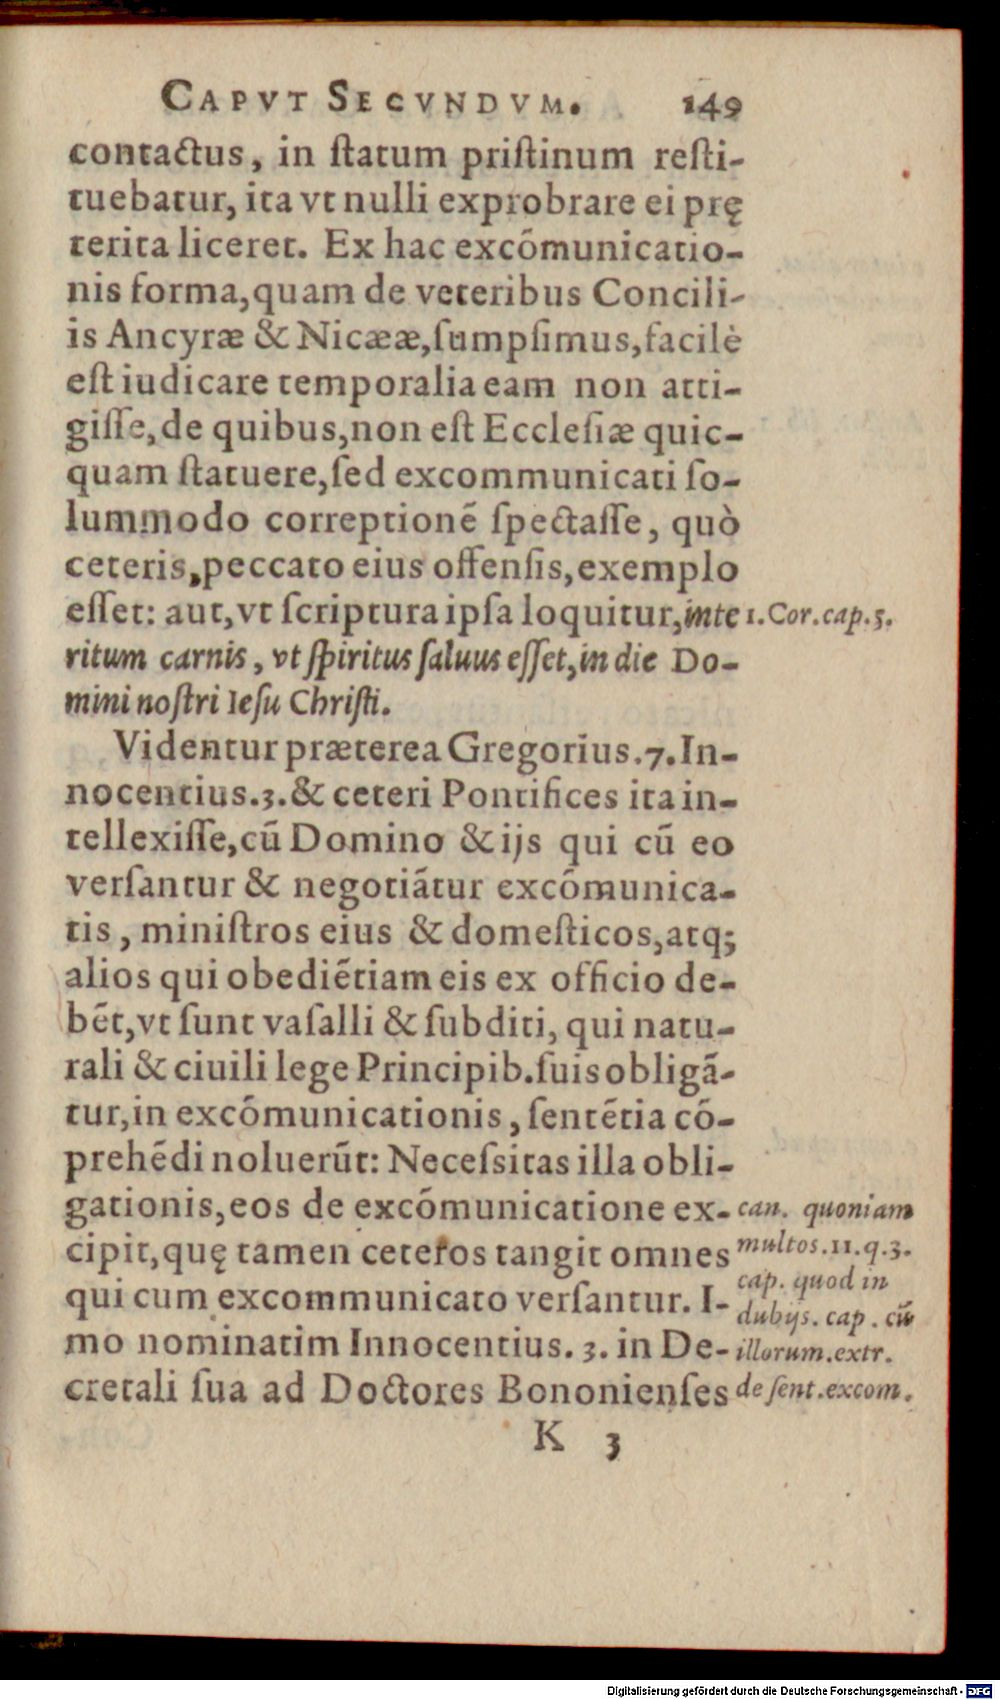 CAPVT SECVNDVM. 149
contactus, in ſtatum priſtinum reſti-
tuebatur, ita vt nulli exprobrare ei prę
terita liceret. Ex hac excōmunicatio-
nis forma, quam de veteribus Concili-
is Ancyræ & Nicææ, ſumpſimus, facilè
eſt iudicare temporalia eam non atti-
giſſe, de quibus, non eſt Eccleſiæ quic-
quam ſtatuere, ſed excommunicati ſo-
lummodo correptionē ſpectaſſe, quò
ceteris, peccato eius offenſis, exemplo
eſſet: aut, vt ſcriptura ipſa loquitur, inte
1. Cor. cap. 5.
ritum carnis, vt ſpiritus ſaluus eſſet, in die Do-
mini noſtri Ieſu Chriſti.
Videntur præterea Gregorius. 7. In-
nocentius. 3. & ceteri Pontifices ita in-
tellexiſſe, cū Domino & ijs qui cū eo
verſantur & negotiātur excōmunica-
tis, miniſtros eius & domeſticos, atq;
alios qui obediētiam eis ex officio de-
bēt, vt ſunt vaſalli & ſubditi, qui natu-
rali & ciuili lege Principib. ſuis obligā-
tur, in excōmunicationis, ſentētia cō-
prehēdi noluerūt: Neceſsitas illa obli-
gationis, eos de excōmunicatione ex-
cipit, quę tamen ceteros tangit omnes
qui cum excommunicato verſantur. I-
mo nominatim Innocentius. 3. in De-
cretali ſua ad Doctores Bononienſes
can. quoniam
multos. 11. q. 3.
cap. quod in
dubijs. cap. cū
illorum. extr.
de ſent. excom.
K 3
Digitalisierung gefördert durch die Deutsche Forschungsgemeinschaft - DFG